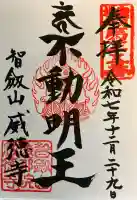 奉拝
令和七年十二月二十九日
不動明王
智劔山 威徳寺